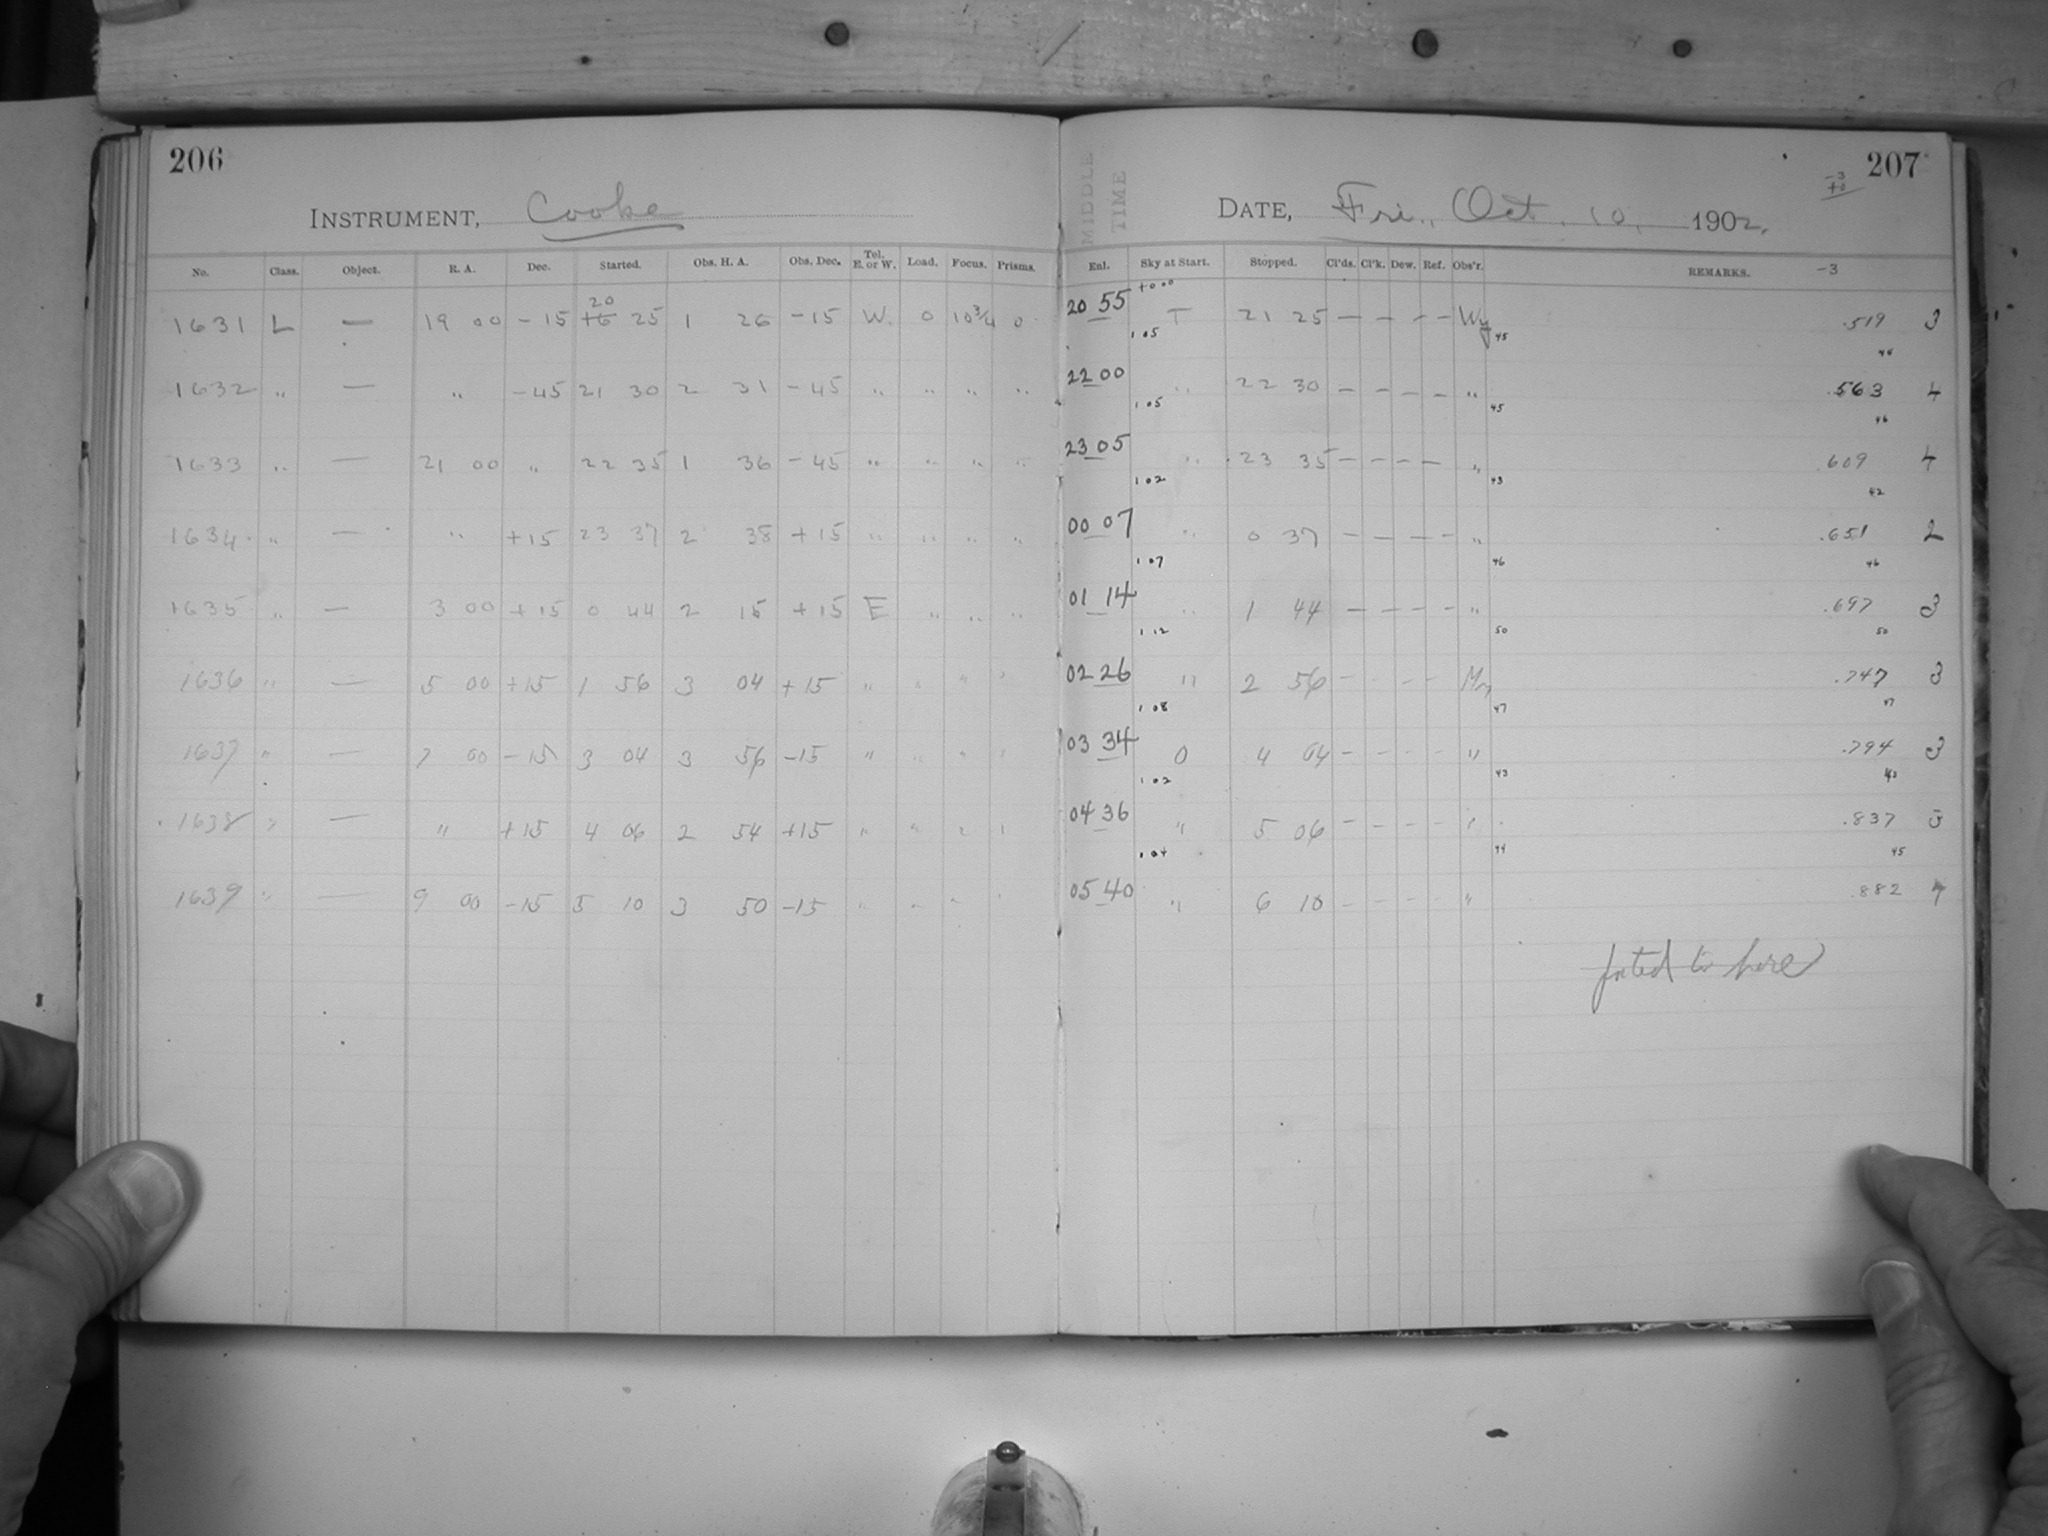 206
INSTRUMENT, Cooke
No. Class. Object. R. A. Dec. Started. Obs. H. A. Obs. Dec. Tel. E. or W. Load. Focus. Prisms.
20
1631 L — 19 00 -15 16 25 1 26 -15 W. 0 10 3/4 0
1632 " — " -45 21 30 2 31 -45 " " " "
1633 " — 21 00 " 22 35 1 36 -45 " " " "
1634 " — " +15 23 37 2 38 +15 " " " "
1635 " — 3 00 +15 0 44 2 15 +15 E " " "
1636 " — 5 00 +15 1 56 3 04 +15 " " " "
1637 " — 7 00 -15 3 04 3 56 -15 " " " "
1638 " — " +15 4 06 2 54 +15 " " " "
1639 " — 9 00 -15 5 10 3 50 -15 " " " "
MIDDLE TIME
207
-3
+0
DATE, Fri., Oct. 10, 1902.
Enl. Sky at Start. Stopped. Cl'ds. Cl'k. Dew. Ref. Obs'r. REMARKS. -3
+000
20 55 T 21 25 — — — — Wy .519 3
1 05 45 44
22 00 " 22 30 — — — — " .563 4
1 05 45 46
23 05 " 23 35 — — — — " .609 4
1 02 43 42
00 07 " 0 37 — — — — " .651 2
1 07 46 46
01 14 " 1 44 — — — — " .697 3
1 12 50 50
02 26 " 2 56 — — — — .747 3
1 08 47 47
03 34 0 4 04 — — — — " .794 3
1 02 43 43
04 36 " 5 06 — — — — " .837 3
1 04 44 45
05 40 " 6 10 — — — — " .882 4
to here